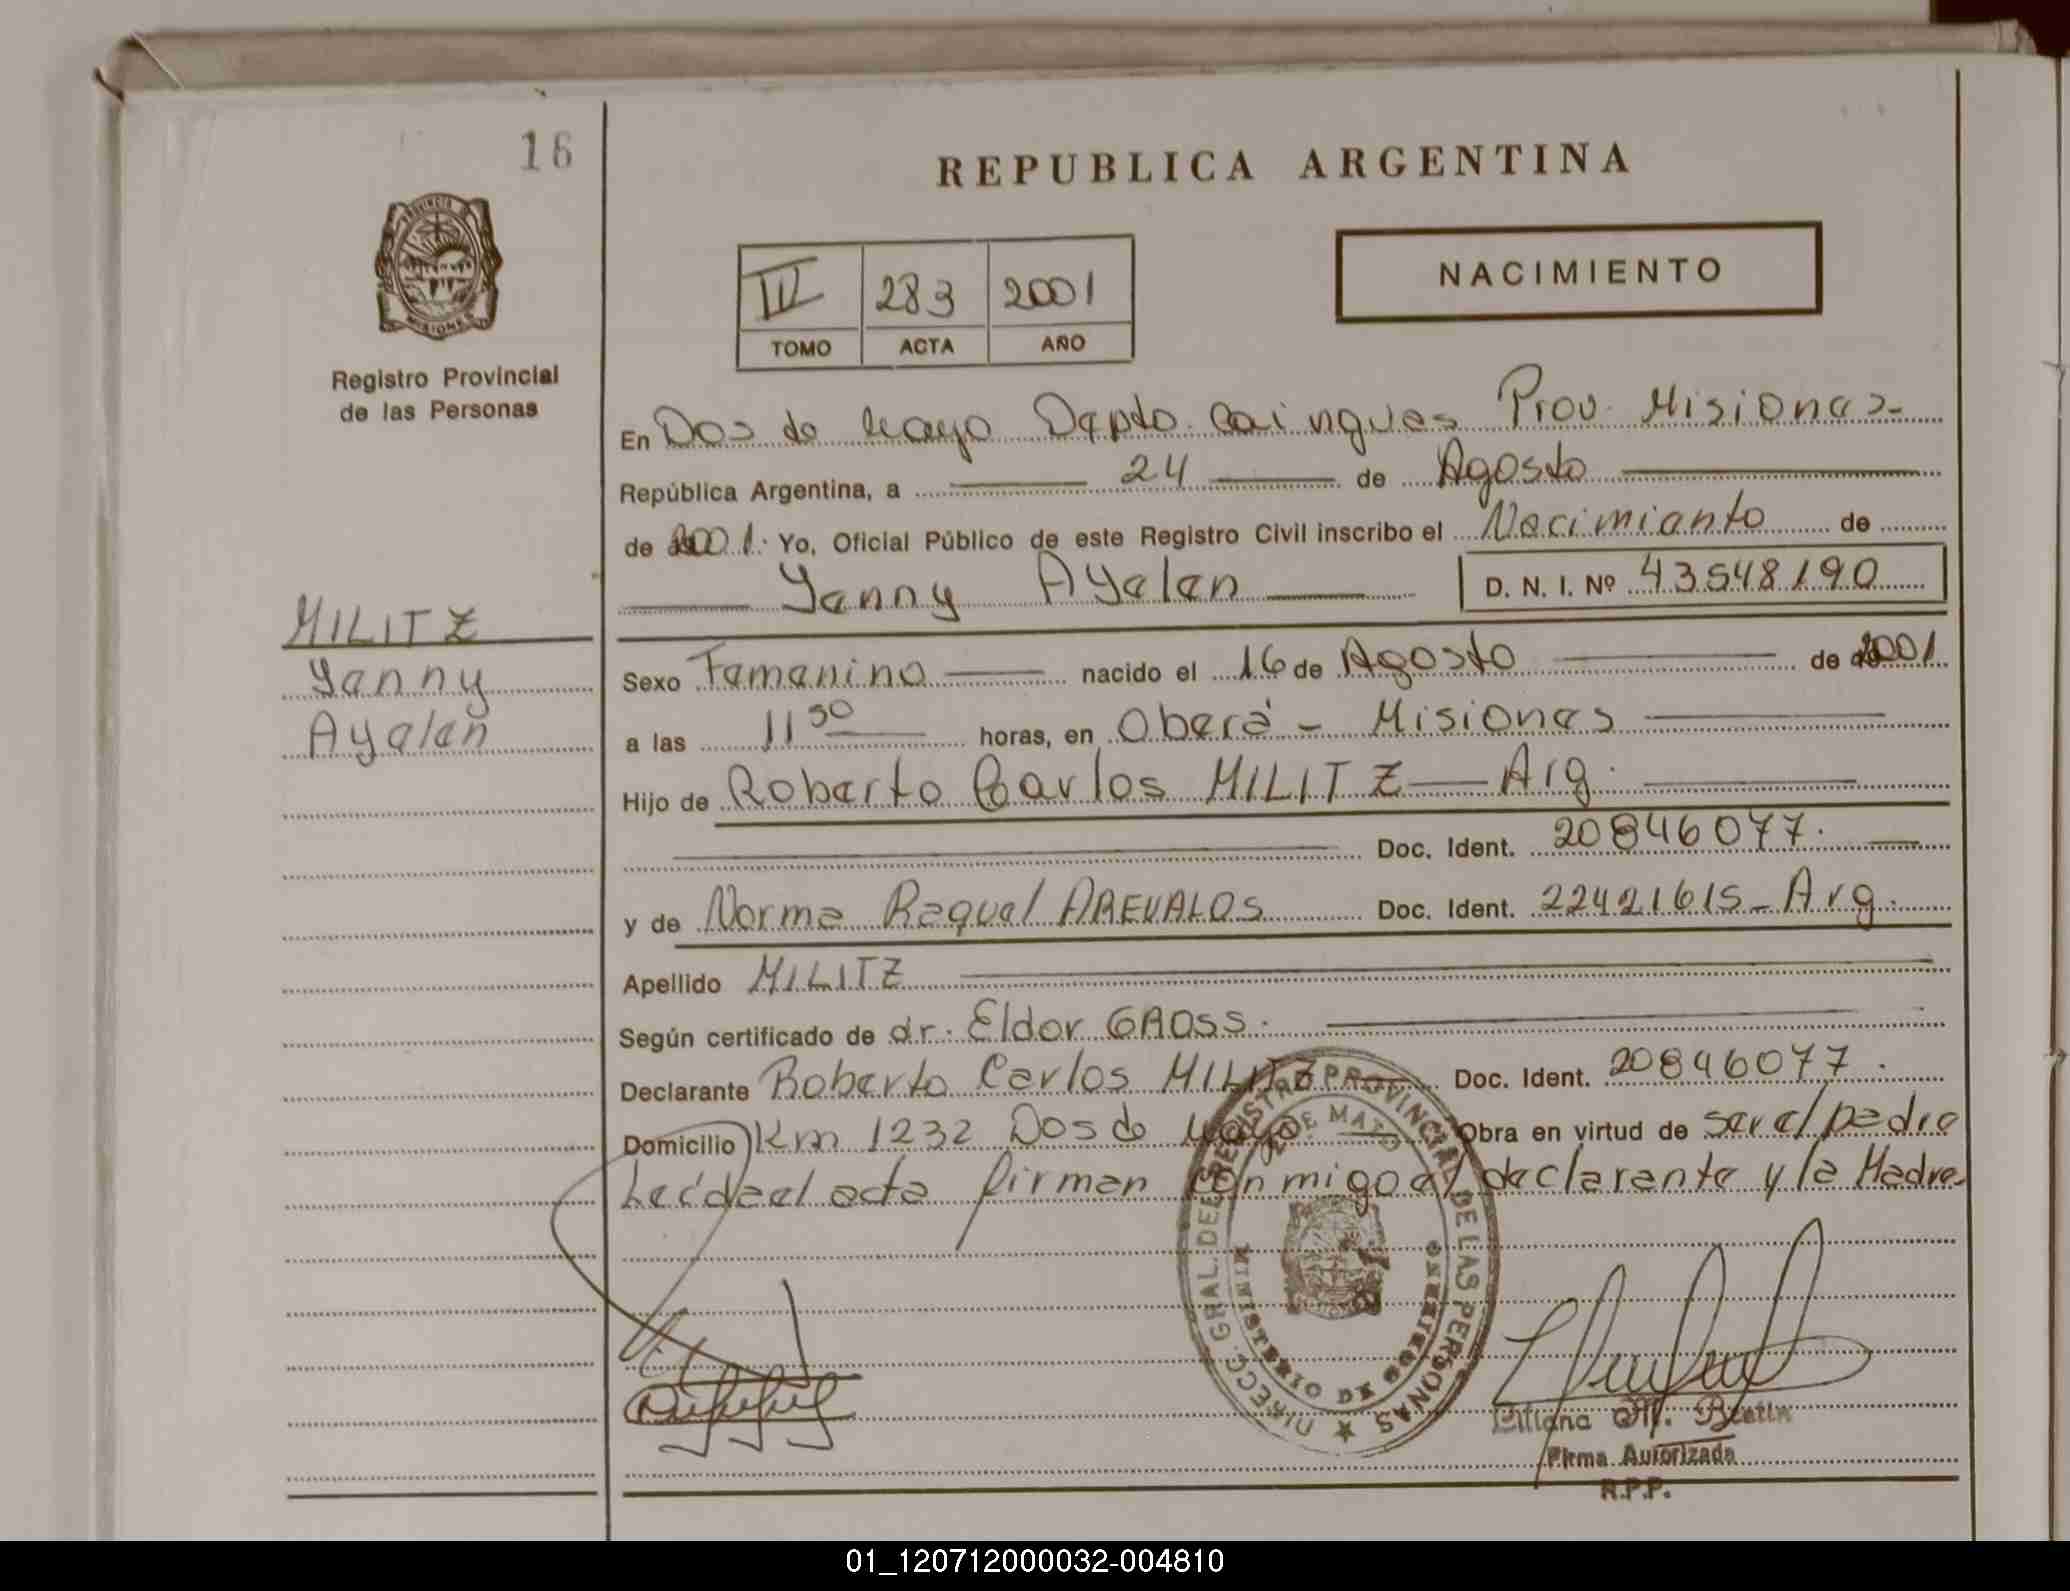 16
REPUBLICA ARGENTINA
PROVINCIA DE
MISIONES
Registro Provincial
de las Personas
III 283 2001
TOMO ACTA AÑO
NACIMIENTO
En Dos de Mayo Depto. Cainguas Prov. Misiones-
República Argentina, a 24 de Agosto
de 2001. Yo, Oficial Público de este Registro Civil inscribo el Nacimiento de
Yanny Ayelen D. N. I. Nº 43548190
MILITZ
Yanny
Ayelen
Sexo Femenino nacido el 16 de Agosto de 2001
a las 11 50 horas, en Oberá - Misiones
Hijo de Roberto Carlos MILITZ — Arg.
Doc. Ident. 20846077.
y de Norma Raquel AREVALOS Doc. Ident. 22421615 - Arg.
Apellido MILITZ
Según certificado de dr. Eldor GROSS.
Declarante Roberto Carlos MILITZ Doc. Ident. 20846077.
Domicilio Km 1232 Dos de Mayo Obra en virtud de ser el padre
Leída el acta firman conmigo el declarante y la Madre
DIRECC. GRAL. DEL REGISTRO PROVINCIAL DE LAS PERSONAS
2 DE MAYO
MINISTERIO DE GOBIERNO
Liliana M.
Firma Autorizada
R.P.P.
01_120712000032-004810